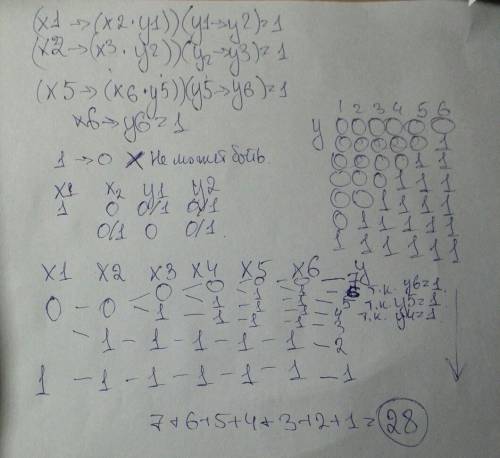 (x1→(x2·y1))(y1→y2)=1
(x2→(x3·y2))(y2→y3)=1
(x5→(x6·y5))(y5→y6)=1
x6→y6=1
1→0 X Не может быть.
x1 x2 y1 y2
1 0 0/1 0/1
0/1 0 0/1
1 2 3 4 5 6
y 0 0 0 0 0 0
0 0 0 0 0 1
0 0 0 0 1 1
0 0 0 1 1 1
0 0 1 1 1 1
0 1 1 1 1 1
1 1 1 1 1 1
x1 x2 x3 x4 x5 x6 y
0 0 0 0 0 0 7
1 1 1 6 т.к. y6=1
0 – 0 1 1 1 1 5 т.к. y5=1
1 1 4 т.к. y4=1
1 3
1 – 1 – 1 – 1 – 1 – 2
1 – 1 – 1 – 1 – 1 – 1 – 1
7+6+5+4+3+2+1=28